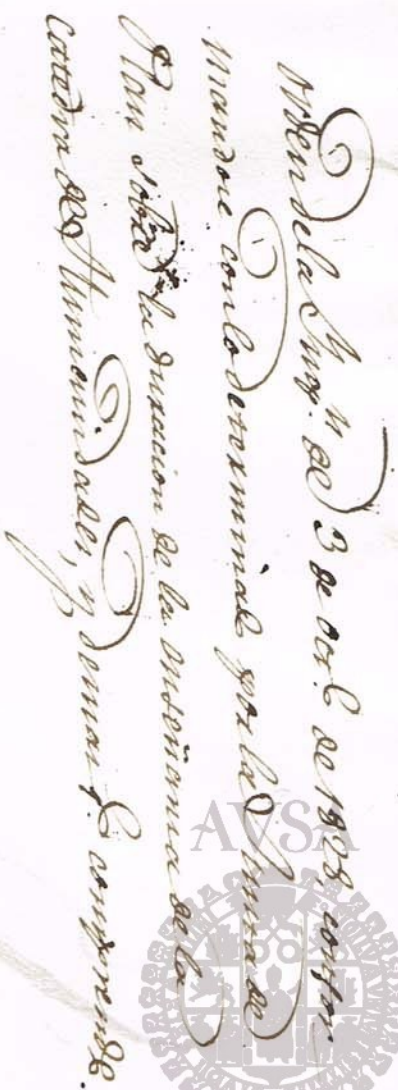 Orden de la Ynspn. de 3 de octe. de 1828, confor
mandose con lo determinado por la Junta de
Plan sobre la duracion de la enseñanza de la
Catedra de Humanidades, y demas qe. comprende.
AVSA